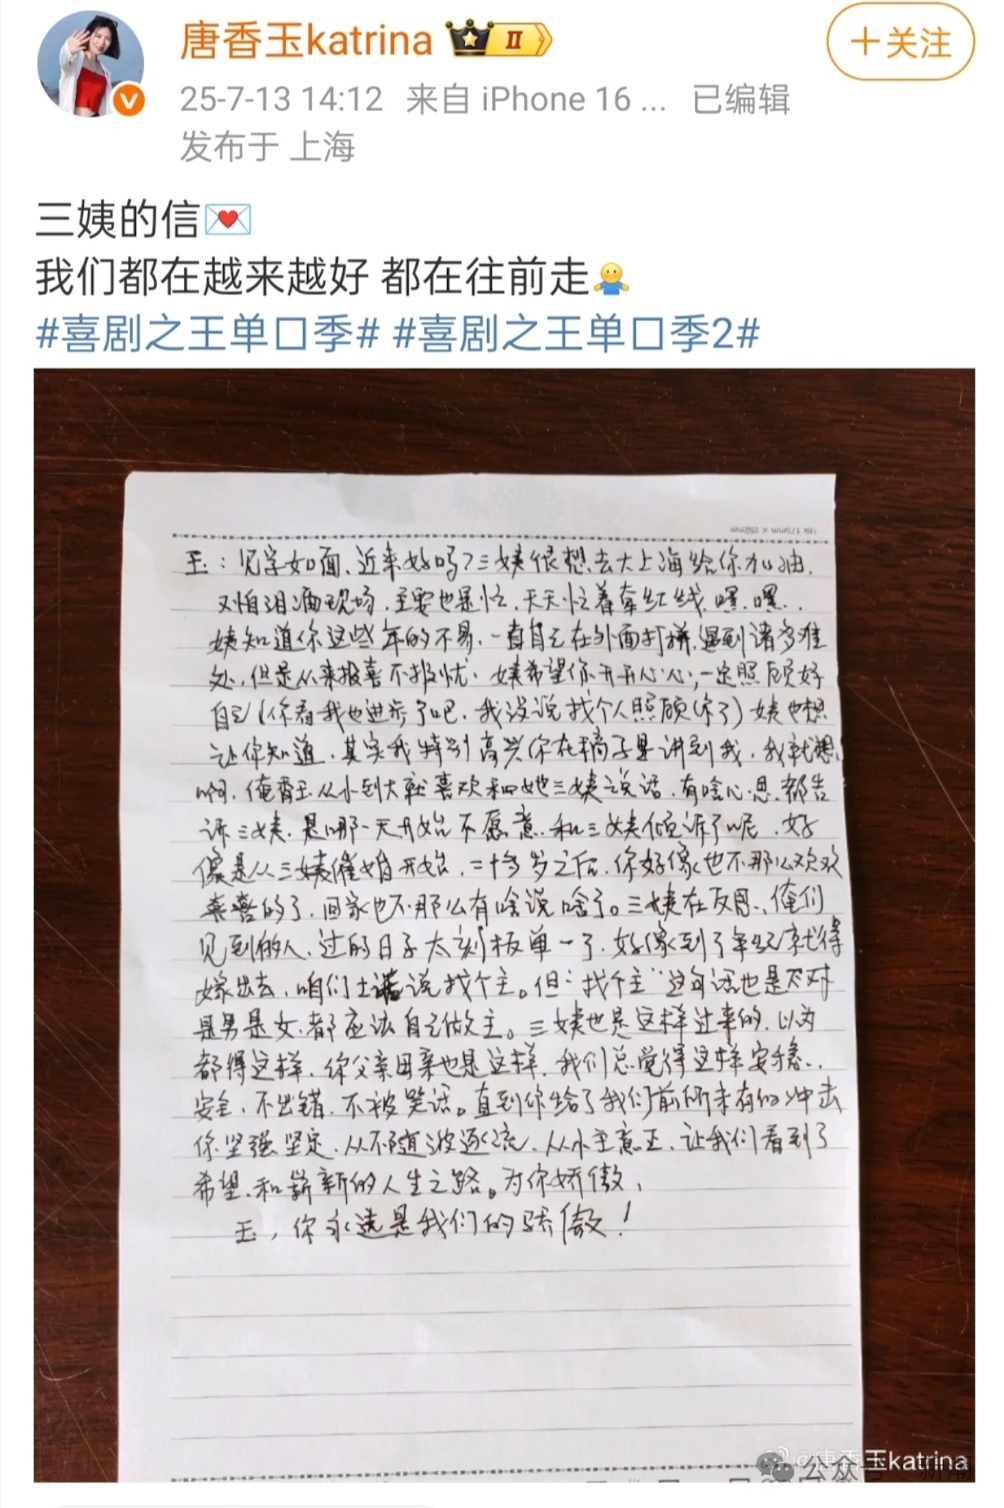 唐香玉katrina
II
+关注
25-7-13 14:12 来自 iPhone 16 ... 已编辑
发布于 上海
三姨的信💌
我们都在越来越好 都在往前走🤷
#喜剧之王单口季# #喜剧之王单口季2#
18k 175mm x 252mm
玉：见字如面、近来好吗？三姨很想去大上海给你加油.
又怕泪洒现场．主要也是忙．天天忙着牵红线．嘿．嘿．.
姨知道你这些年的不易．一直自己在外面打拼．遇到诸多难
处．但是从来报喜不报忧．姨希望你开开心心；一定照顾好
自己（你看我也进步了吧．我没说找个人照顾你了）姨也想
让你知道．其实我特别高兴你在稿子里讲到我．我就想
啊．俺香玉从小到大就喜欢和她三姨说话．有啥心思．都告
诉三姨．是哪一天开始不愿意．和三姨倾诉了呢．好
像是从三姨催婚开始．二十多岁之后．你好像也不那么欢欢
喜喜的了．回家也不那么有啥说啥了。三姨在反思．俺们
见到的人．过的日子太刻板单一了．好像到了年纪就得
嫁出去．咱们土话说找个主。但“找个主”这句话也是不对
是男是女．都应该自己做主。三姨也是这样过来的．以为
都得这样．你父亲母亲也是这样．我们总觉得这样安稳．.
安全．不出错．不被笑话。直到你给了我们前所未有的冲击
你坚强坚定．从不随波逐流．从小主意正．让我们看到了
希望．和崭新的人生之路。为你娇傲，
玉，你永远是我们的骄傲！
@唐香玉katrina
公众号